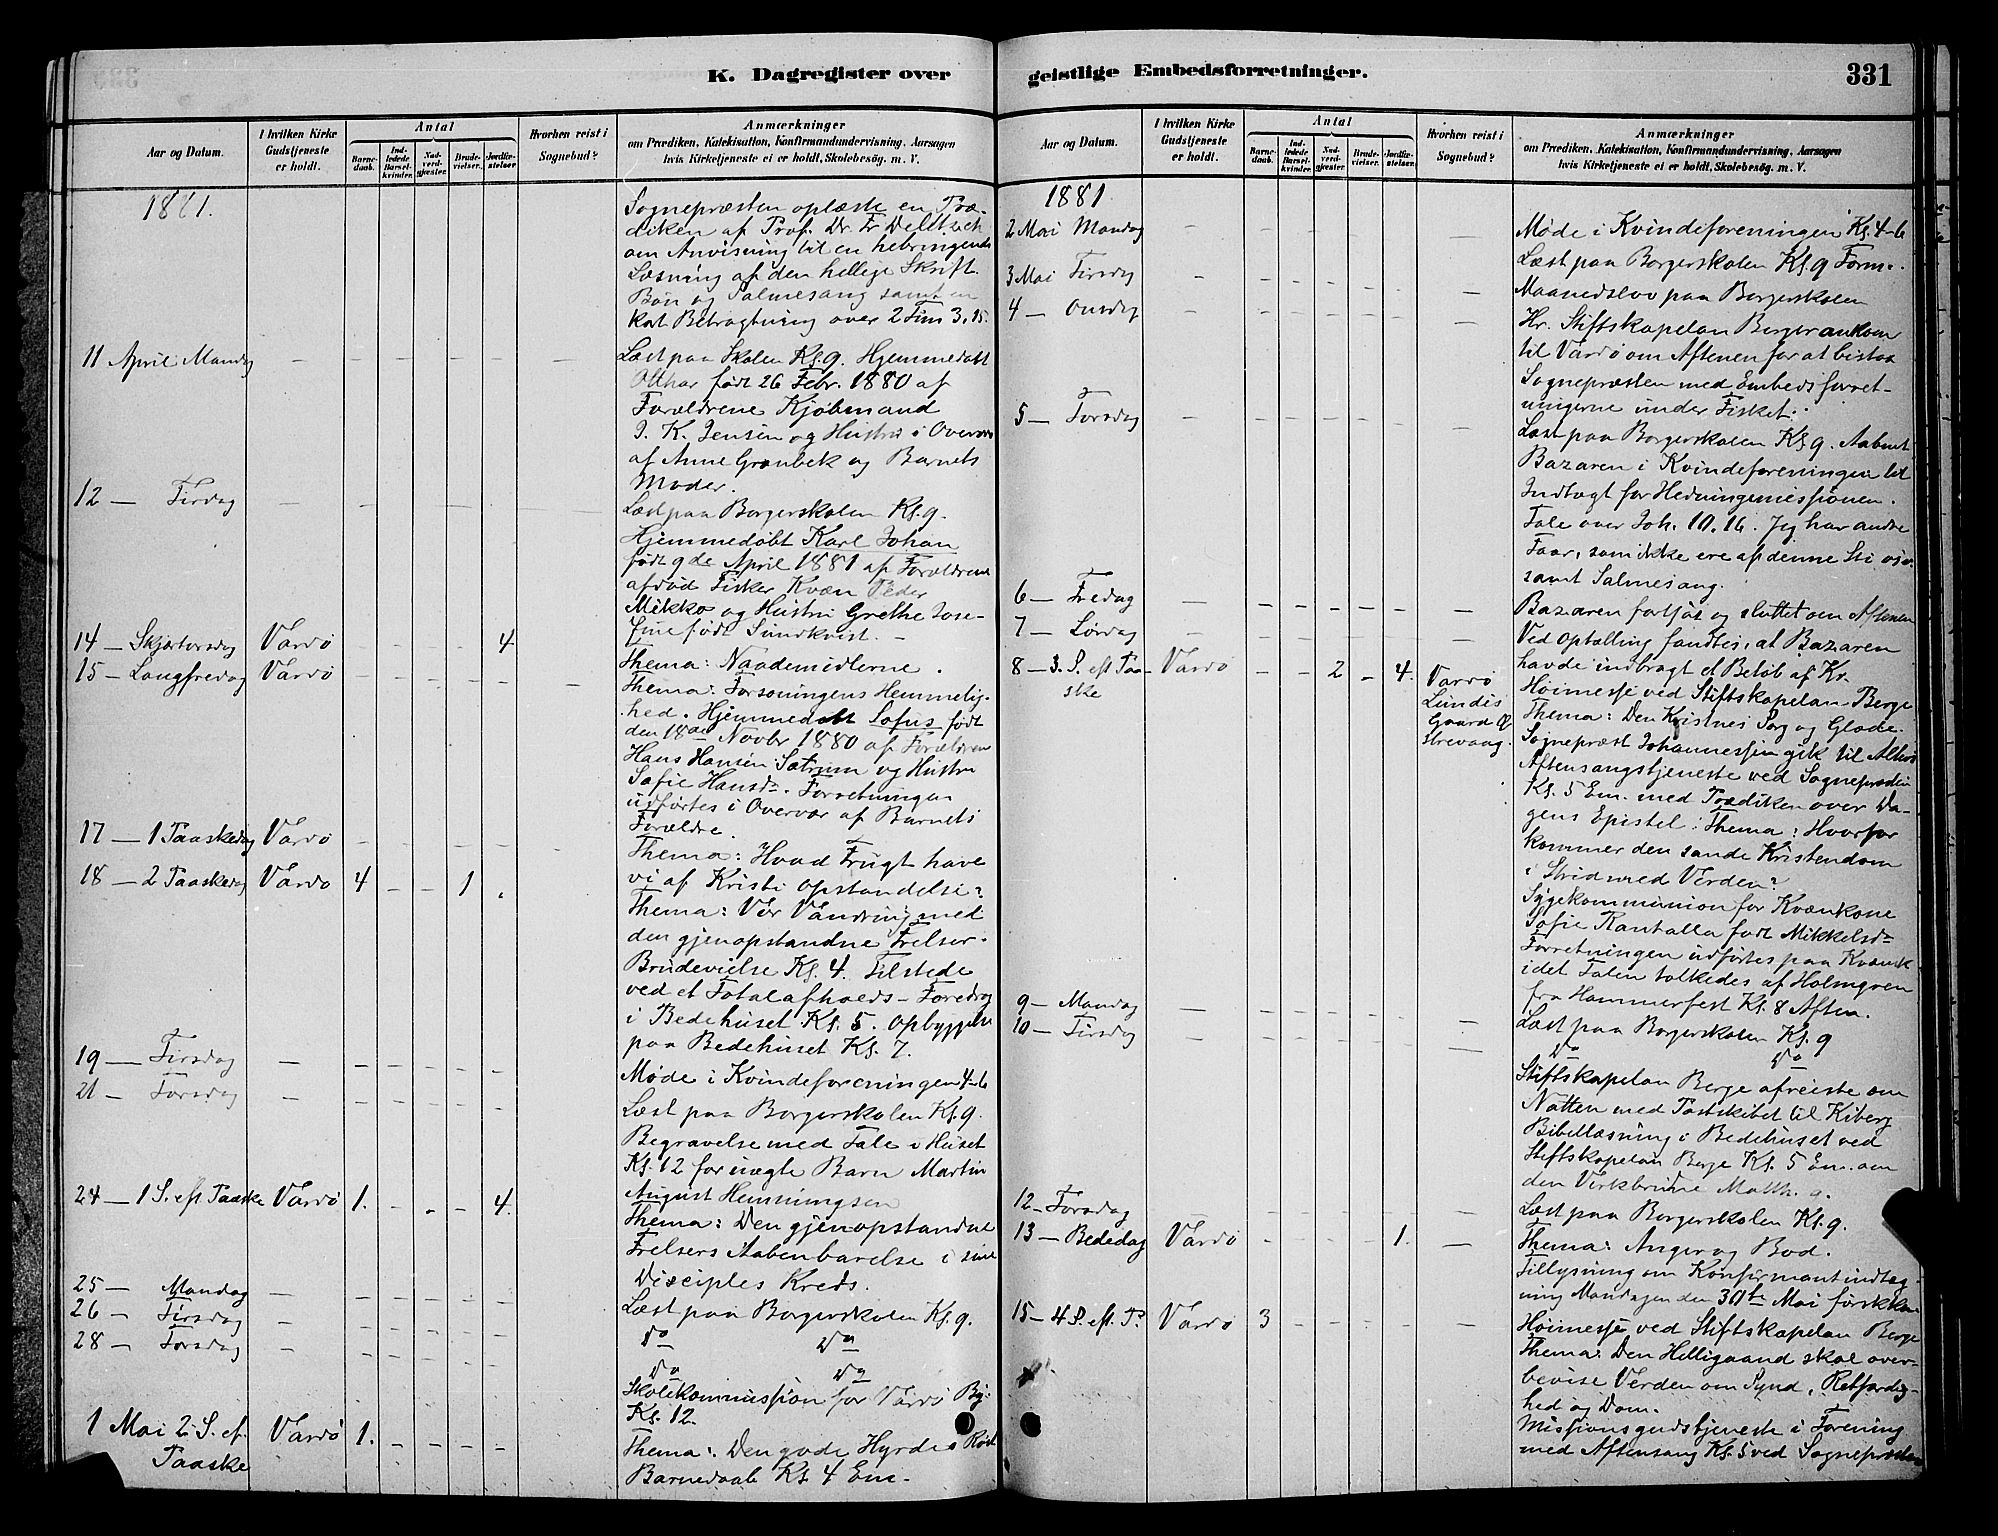 K. Dagregister over
Aar og Datum.
I hvilken Kirke Gudstjeneste er holdt.
Antal
Barnedaab.
Indledede Barselkvinder.
Nadverdgjæster.
Brudevielser.
Jordfæstelser.
Hvorhen reist i Sognebud?
Anmærkninger
om Prædiken, Katekisation, Konfirmandundervisning, Aarsagen
hvis Kirketjeneste ei er holdt, Skolebesøg. m. V.
1881.
Sognepræsten oplæste en Præ-
diken af Prof. Dr. Fr Delitzsch
om Anvisning til en
Læsning af den hellige Skrift.
Bøn og Salmesang samt en
kort Betragtning over 2 Tim 3.15.
11 April Mandag
Læst paa Skolen Kl. 9. Hjemmedøbt
Othar født 26 Febr. 1880 af
Forældrene Kjøbmand
J. K. Jensen og Hustru i Overvær
af Anne Grønbek og Barnets
Moder.
12 — Tirsdag
Læst paa Borgerskolen Kl. 9.
Hjemmedøbt Karl Johan
født 9de April 1881 af Forældrene
afdød Fisker Kvæn Peder
Mikko og Hustru Grethe Jose-
fine født Sundkvist. —
14 — Skjærtorsdag Vardø 4
Thema: Naademidlerne.
15 — Langfredag Vardø
Thema: Forsoningens Hemmelig-
hed. Hjemmedøbt Sofus født
den 18de Novbr 1880 af Forældrene
Hans Hansen Sætrum og Hustru
Sofie Hansdr. Forretningen
udførtes i Overvær af Barnets
Forældre.
17 — 1 Paaskedag Vardø
Thema: Hvad Frugt have
vi af Kristi opstandelse?
18 — 2 Paaskedag Vardø 4 1
Thema: Vor Vandring med
den gjenopstandne Frelser.
Brudevielse Kl. 4. Tilstede
ved et Totalafholds-Foredrag
i Bedehuset Kl. 5. Opbyggelse
paa Bedehuset Kl. 7.
19 — Tirsdag
Møde i Kvindeforeningen 4-6
21 — Torsdag
Læst paa Borgerskolen Kl. 9.
Begravelse med Tale i Huset
Kl. 12 for uægte Barn Martin
August Hemmingsen
24 — 1 S. eft Paaske Vardø 1. 4.
Thema: Den gjenopstandne
Frelsers Aabenbarelse i sine
Disciples Kreds.
25 — Mandag
Læst paa Borgerskolen Kl. 9.
26 — Tirsdag
Do Do
28 — Torsdag
Do Do
Skolekommission for Vardø By.
Kl. 12.
1 Mai 2 S. ef. Paaske Vardø 1.
Thema: Den gode Hyrdes Røst
Barnedaab Kl 4 Em.
geistlige Embedsforretninger.
331
Aar og Datum.
I hvilken Kirke Gudstjeneste er holdt.
Antal
Barnedaab.
Indledede Barselkvinder.
Nadverdgjæster.
Brudevielser.
Jordfæstelser.
Hvorhen reist i Sognebud?
Anmærkninger
om Prædiken, Katekisation, Konfirmandundervisning, Aarsagen
hvis Kirketjeneste ei er holdt, Skolebesøg. m. V.
1881
2 Mai Mandag
Møde i Kvindeforeningen Kl. 4-6
3 Mai Tirsdag
Læst paa Borgerskolen Kl 9 Form.
4 — Onsdag
Maanedslov paa Borgerskolen
Hr. Stiftskapelan Berge ankom
til Vardø om Aftenen for at bistaa
Sognepræsten med Embedsforret-
ningerne under Fisket.
5 — Torsdag
Læst paa Borgerskolen Kl 9. Aabnet
Bazaren i Kvindeforeningen til
Indtægt for Hedningemissionen.
Tale over Joh. 10.16. Jeg har andre
Faar, som ikke ere af denne Sti osv.
samt Salmesang.
6 — Fredag
Bazaren fortsat og sluttet om Aftenen
7 — Lørdag
Ved optælling fandtes, at Bazaren
havde indbragt et Beløb af Kr.
8 — 3. S. eft Paaske Vardø 2 4. Vardø Lundis Gaard
Høimesse ved Stiftskapelan Berge
Thema: Den Kristnes Sorg og Glæde.
Sognepræst Johannessen gik til Alters
Aftensangstjeneste ved Sognepræsten
Kl. 5 Em. med Prædiken over Da-
gens Epistel: Thema: Hvorfor
kommer den sande Kristendom
i Strid med Verden?
Sygekommunion for Kvænkone
Sofie Rantalla født Mikkelsdr
Forretningen udførtes paa Kvænsk
idet Talen tolkedes af Holmgren
fra Hammerfest Kl. 8 Aften.
9 — Mandag
Læst paa Borgerskolen Kl. 9
10 — Tirsdag
Do Do
Stiftskapelan Berge afreiste om
Natten med Postskibet til Kiberg
Bibellæsning i Bedehuset ved
Stiftskapelan Berge Kl. 5 Em. om
den Virkbrudne Matth. 9.
12 — Torsdag
Læst paa Borgerskolen Kl. 9.
13 — Bededag Vardø 1.
Thema: Anger og Bod.
Tillysning om Konfirmantindtag-
ning Mandagen den 30te Mai førstk.
15 — 4 S. eft. P. Vardø 3
Høimesse ved Stiftskapelan Berge
Thema: Den Helligaand skal over-
bevise Verden om Synd, Retfærdig-
hed og Dom.
Missionsgudstjeneste i Forening
med Aftensang Kl. 5 ved Sognepræsten